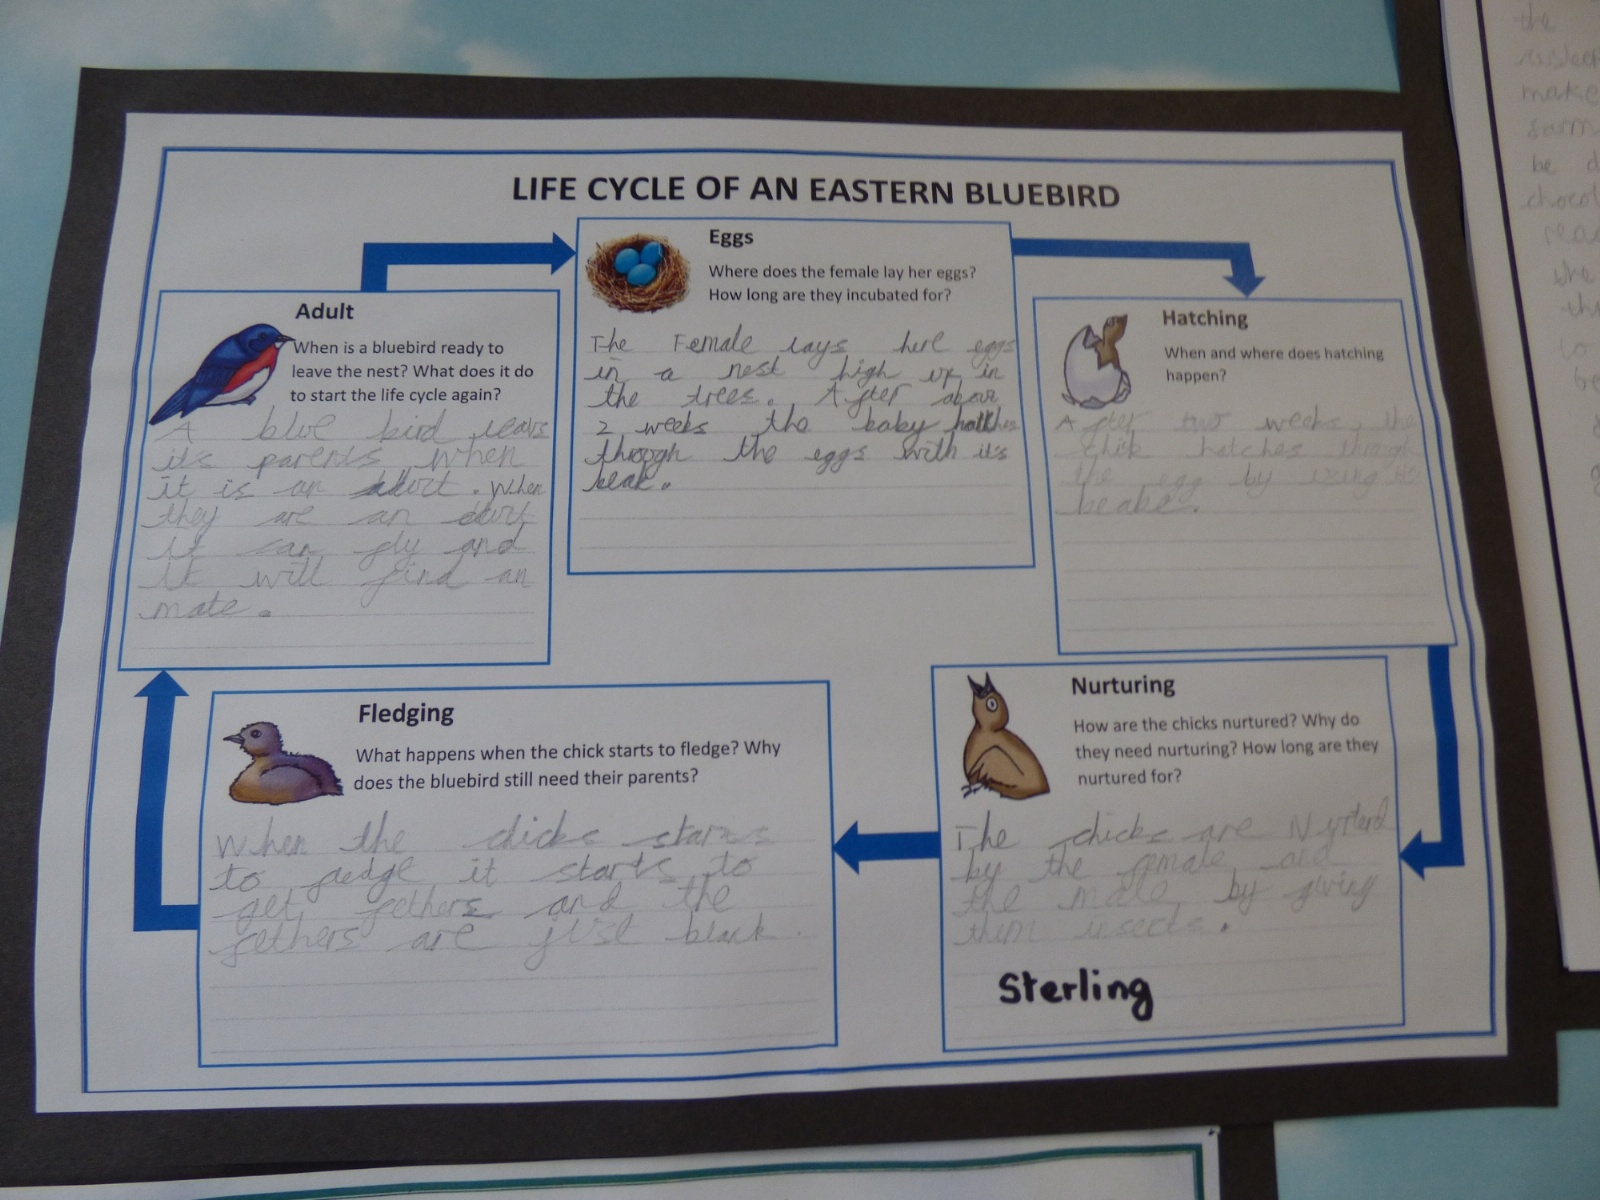 LIFE CYCLE OF AN EASTERN BLUEBIRD
Adult
When is a bluebird ready to
leave the nest? What does it do
to start the life cycle again?
A blue bird leavs
it's parents when
it is an adult. When
they are an
it can fly and
it will find an
mate.
Eggs
Where does the female lay her eggs?
How long are they incubated for?
The Female lays here eggs
in a nest high up in
the trees. After about
2 weeks the baby hatches
though the eggs with it's
beak.
Hatching
When and where does hatching
happen?
After two weeks, the
chick hatches through
the egg by using its
beake.
Nurturing
How are the chicks nurtured? Why do
they need nurturing? How long are they
nurtured for?
The chicks are
by the female and
the male by giving
them
Sterling
Fledging
What happens when the chick starts to fledge? Why
does the bluebird still need their parents?
When the chicks starts
to fledge it starts to
get fethers and the
fethers are just black.
the
make
be d
chocol
the
to